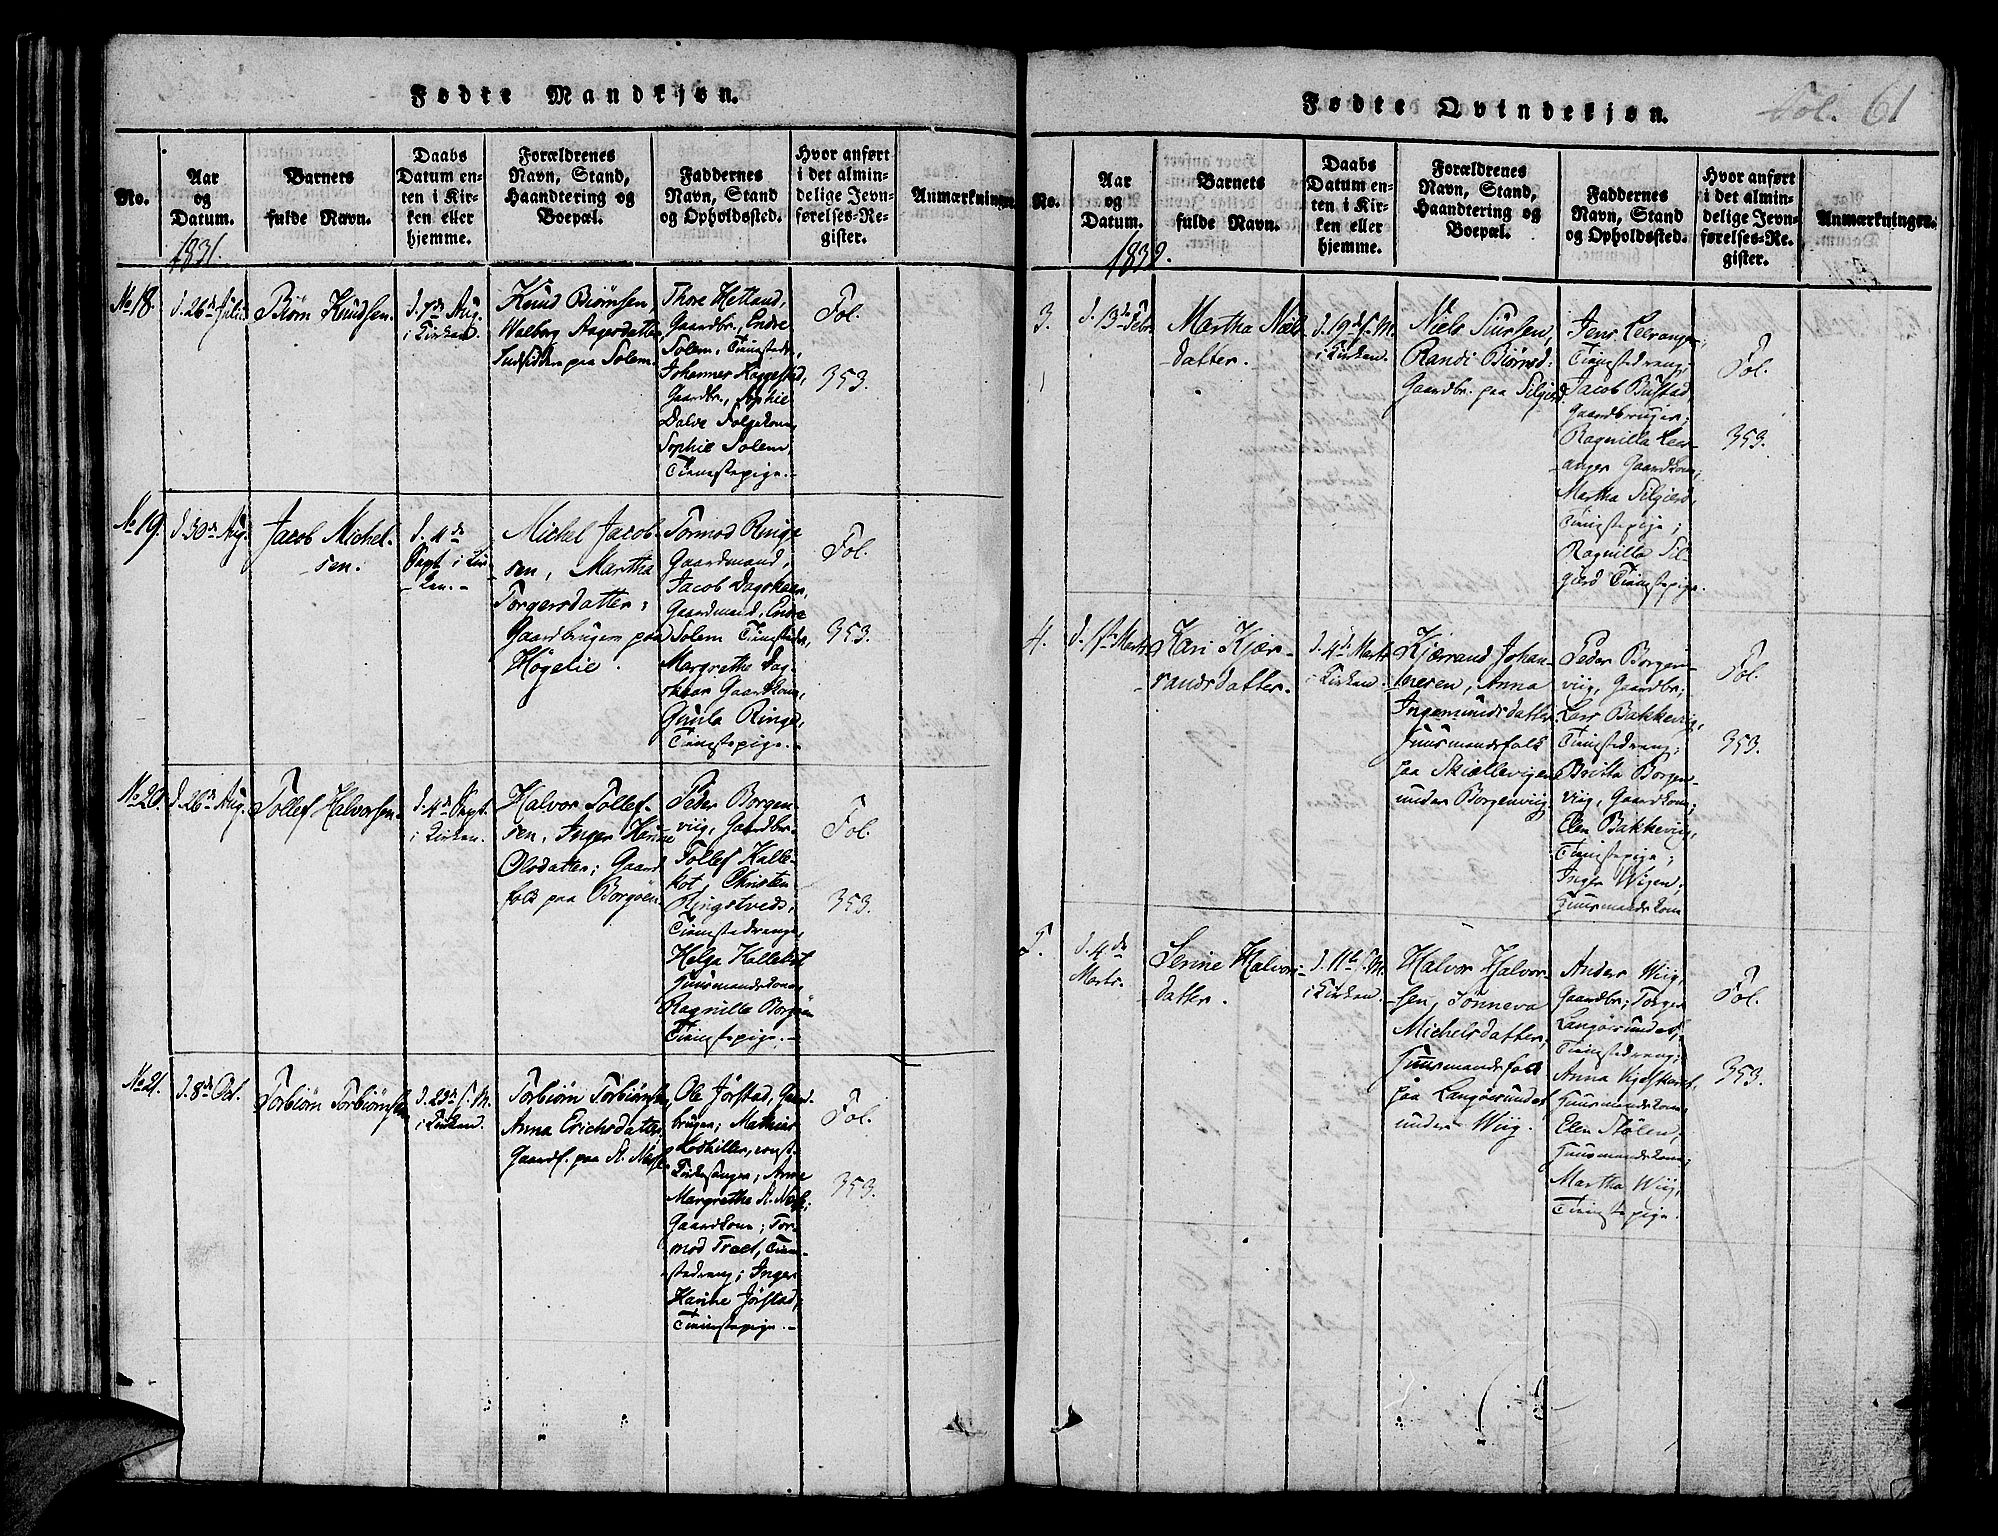 Fødte Mandkjøn.
No.
Aar
og
Datum.
Barnets
fulde Navn.
Daabs
Datum en-
ten i Kir-
ken eller
hjemme.
Forældrenes
Navn, Stand,
Haandtering og
Boepæl.
Faddernes
Navn, Stand
og Opholdssted.
Hvor anført
i det almin-
delige Jevn-
førelses-Re-
gister.
Anmærkninger.
1831.
No 18.
d. 26de Julii
Biørn Knudsen.
d. 7de Aug.
i Kirken.
Knud Biørnsen
Walborg Aagesdatter
Indsidder paa Solem.
Thore Hetland,
Gaardbr., Endre
Solem, Tienistedr.,
Johannes Haggestad,
Gaardbr., Sophie
Dalve Folgekone,
Sophie Solem
Tienistepige.
Fol.
353.
No 19.
d. 30de Aug.
Jacob Michel-
sen.
d. 4de
Sept. i Kir-
ken.
Michel Jacob-
sen, Martha
Torgersdatter:
Gaardbruger paa
Høgelie.
Tormod Ringe
Gaardmand,
Jacob Dagskaar,
Gaardmand, Endre
Solem Tienistedr.,
Margrethe Dag-
skaar Gaardkone,
Gunla Ringe,
Tienistepige.
Fol.
353.
No 20.
d. 26de Aug.
Tollef Halvorsen
d. 4de Sept.
i Kirken.
Halvor Tollef-
sen, Inger
Olsdatter; Gaard
folk paa Borgøen.
Peder Borgen-
viig, Gaardbr.
Tollef Kalle-
kot, Christen
Ringstveds,
Tienistedrenge,
Helga Kallekot
Huusmandskone,
Ragnilla Borgøen
Tienistepige.
Fol.
353.
No 21.
d. 8de Oct.
Torbiørn Torbiørnsen
d. 23de s. M.
i Kirken.
Torbiørn Torbiørnsen,
Anna Erichsdatter
Gaardf. paa N. Næs
Ole Jørstad, Gaard-
bruger; Mathias
Anne
Margrethe N. Næs;
Gaardkone; Tor-
mod Traet, Tien-
stedreng; Inger
Karine Jørstad,
Tienistepige.
Fol.
353.
Fødte Qvindekjøn.
Fol. 61
No.
Aar
og
Datum.
Barnets
fulde Navn.
Daabs
Datum en-
ten i Kir-
ken eller
hjemme.
Forældrenes
Navn, Stand,
Haandtering og
Boepæl.
Faddernes
Navn, Stand
og Opholdssted.
Hvor anført
i det almin-
delige Jevn-
førelses-Re-
gister.
Anmærkninger.
1832.
3.
d. 13de Febr.
Martha Niels
datter.
d. 19de s. M.
i Kirken.
Niels Siursen,
Randi Biørnsd:
Gaardbr. paa Silgierd
Jens Leeranger,
Tienistedreng;
Jacob Bustad
Gaardbruger,
Ragnilla Leer-
anger Gaardkone;
Martha Silgierd,
Tienistepige;
Ragnilla Sil-
gierd Tienistepige.
Fol.
353.
4.
d. 1ste Marts
Kari Kjær-
randsdatter.
d. 4de Marts
i Kirken.
Kjærrand Johan-
nesen, Anna
Ingemundsdatter
Huusmandsfolk
paa Skiællevigen
under Borgenviig
Peder Borgen-
viig, Gaardbr;
Lars Bakkeviig,
Tienistedreng;
Britta Borgen-
viig, Gaardkone;
Elen Bakkeviig,
Tienistepige;
Inger Wigen,
Huusmandskone
Fol.
353.
5.
d. 4de
Marts.
Serine Halvors-
datter.
d. 11te s. M.
i Kirken.
Halvor Halvor-
sen, Sønneva
Michelsdatter,
Huusmandsfolk
paa Langøesundet
under Wiig.
Anders Wiig,
Gaardbr; Torger
Langøesundet,
Tienistedreng;
Anna
Huusmandskone,
Elen Stølen,
Huusmandskone;
Martha Wiig,
Tienistepige.
Fol.
353.